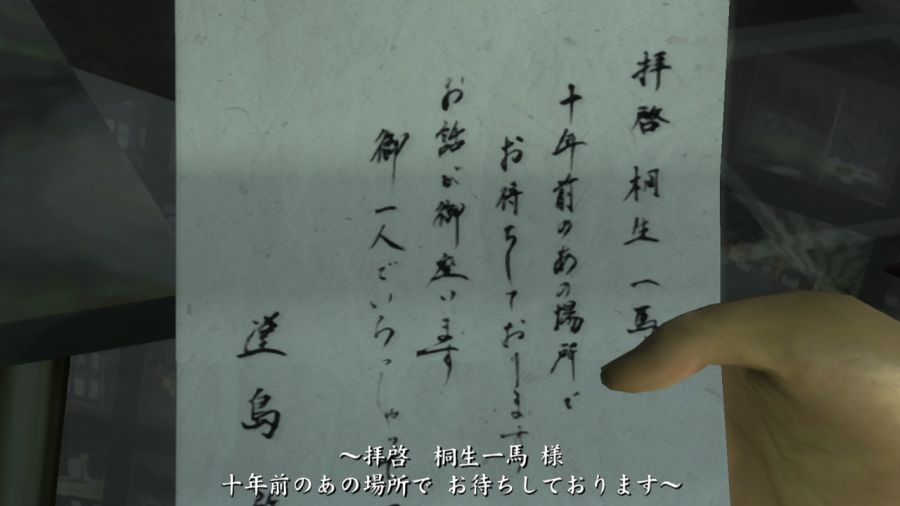 拝啓 桐生一馬
十年前のあの場所で
お待ちしております
お話が御座います
御一人でいらっしゃって
島
～拝啓 桐生一馬 様
十年前のあの場所で お待ちしております～